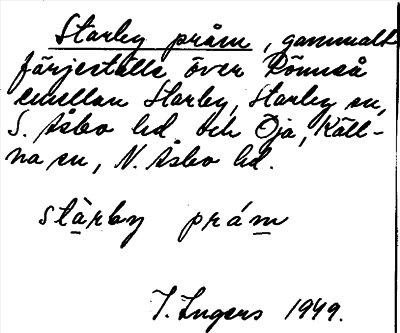 Starby pråm, gammalt
färjeställe över Rönneå
emellan Starby, Starby sn,
S. Åsbo hd och Öja, Käll-
na sn, N. Åsbo hd.
stàrby prám
I. Ingers 1949.